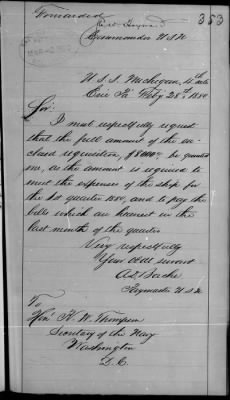 Forwarded
353
Commander U.S.N.
U.S.S. Michigan,
Erie Pa. Feby 28th 1880
Sir:
I most respectfully request
that the full amount of the en-
closed requisition, $8000 be granted
me, as the amount is required to
meet the expenses of the ship for
the 3d quarter 1880, and to pay the
bills which are heaviest in the
last month of the quarter.
Very respectfully
Your obdt servant
Paymaster U.S.N.
To
Hon. R. W. Thompson
Secretary of the Navy
Washington
D.C.